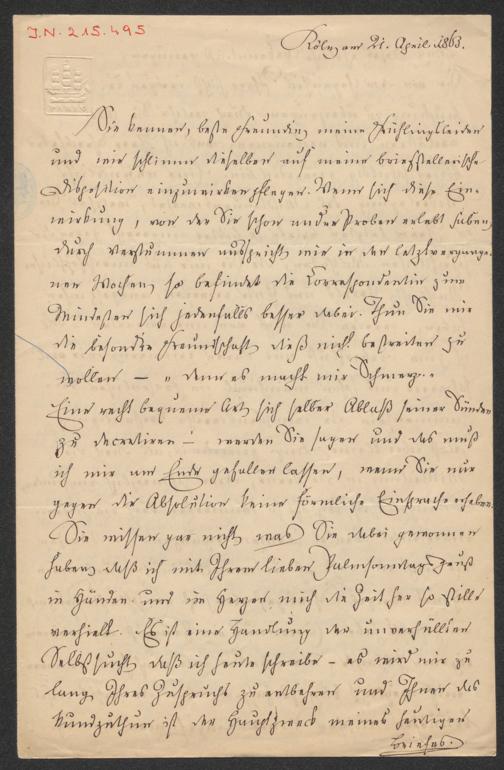 I.N. 215.495
Köln, am 21. April 1863.
Sie kennen, beste Freundin, meine Frühlingsleiden
und wie schlimm dieselben auf meine briefstellerische
Disposition einzuwirken pflegen. Wenn sich diese Ein-
wirkung, von der Sie schon andre Proben erlebt haben,
durch Verstummen ausspricht, wie in den letztvergange-
nen Wochen, so befindet die Correspondentin zum
Mindesten sich jedenfalls besser dabei. Thun Sie mir
die besondre Freundschaft dieß nicht bestreiten zu
wollen — „denn es macht mir Schmerz."
Eine recht bequeme Art, sich selber Ablaß seiner Sünden
zu decretiren! — werden Sie sagen und das muß
ich mir am Ende gefallen lassen, wenn Sie nur
gegen die Absolution keine förmliche Einsprache erheben.
Sie wissen gar nicht was Sie dabei gewonnen
haben, daß ich mit Ihrem lieben Palmsonntags-Gruß
in Händen und im Herzen mich die Zeit her so stille
verhielt. Es ist eine Handlung der unverhüllten
Selbstsucht, daß ich heute schreibe – es wird mir zu
lang Ihres Zuspruchs zu entbehren und Ihnen das
kundzuthun ist der Hauptzweck meines heutigen
Briefes.